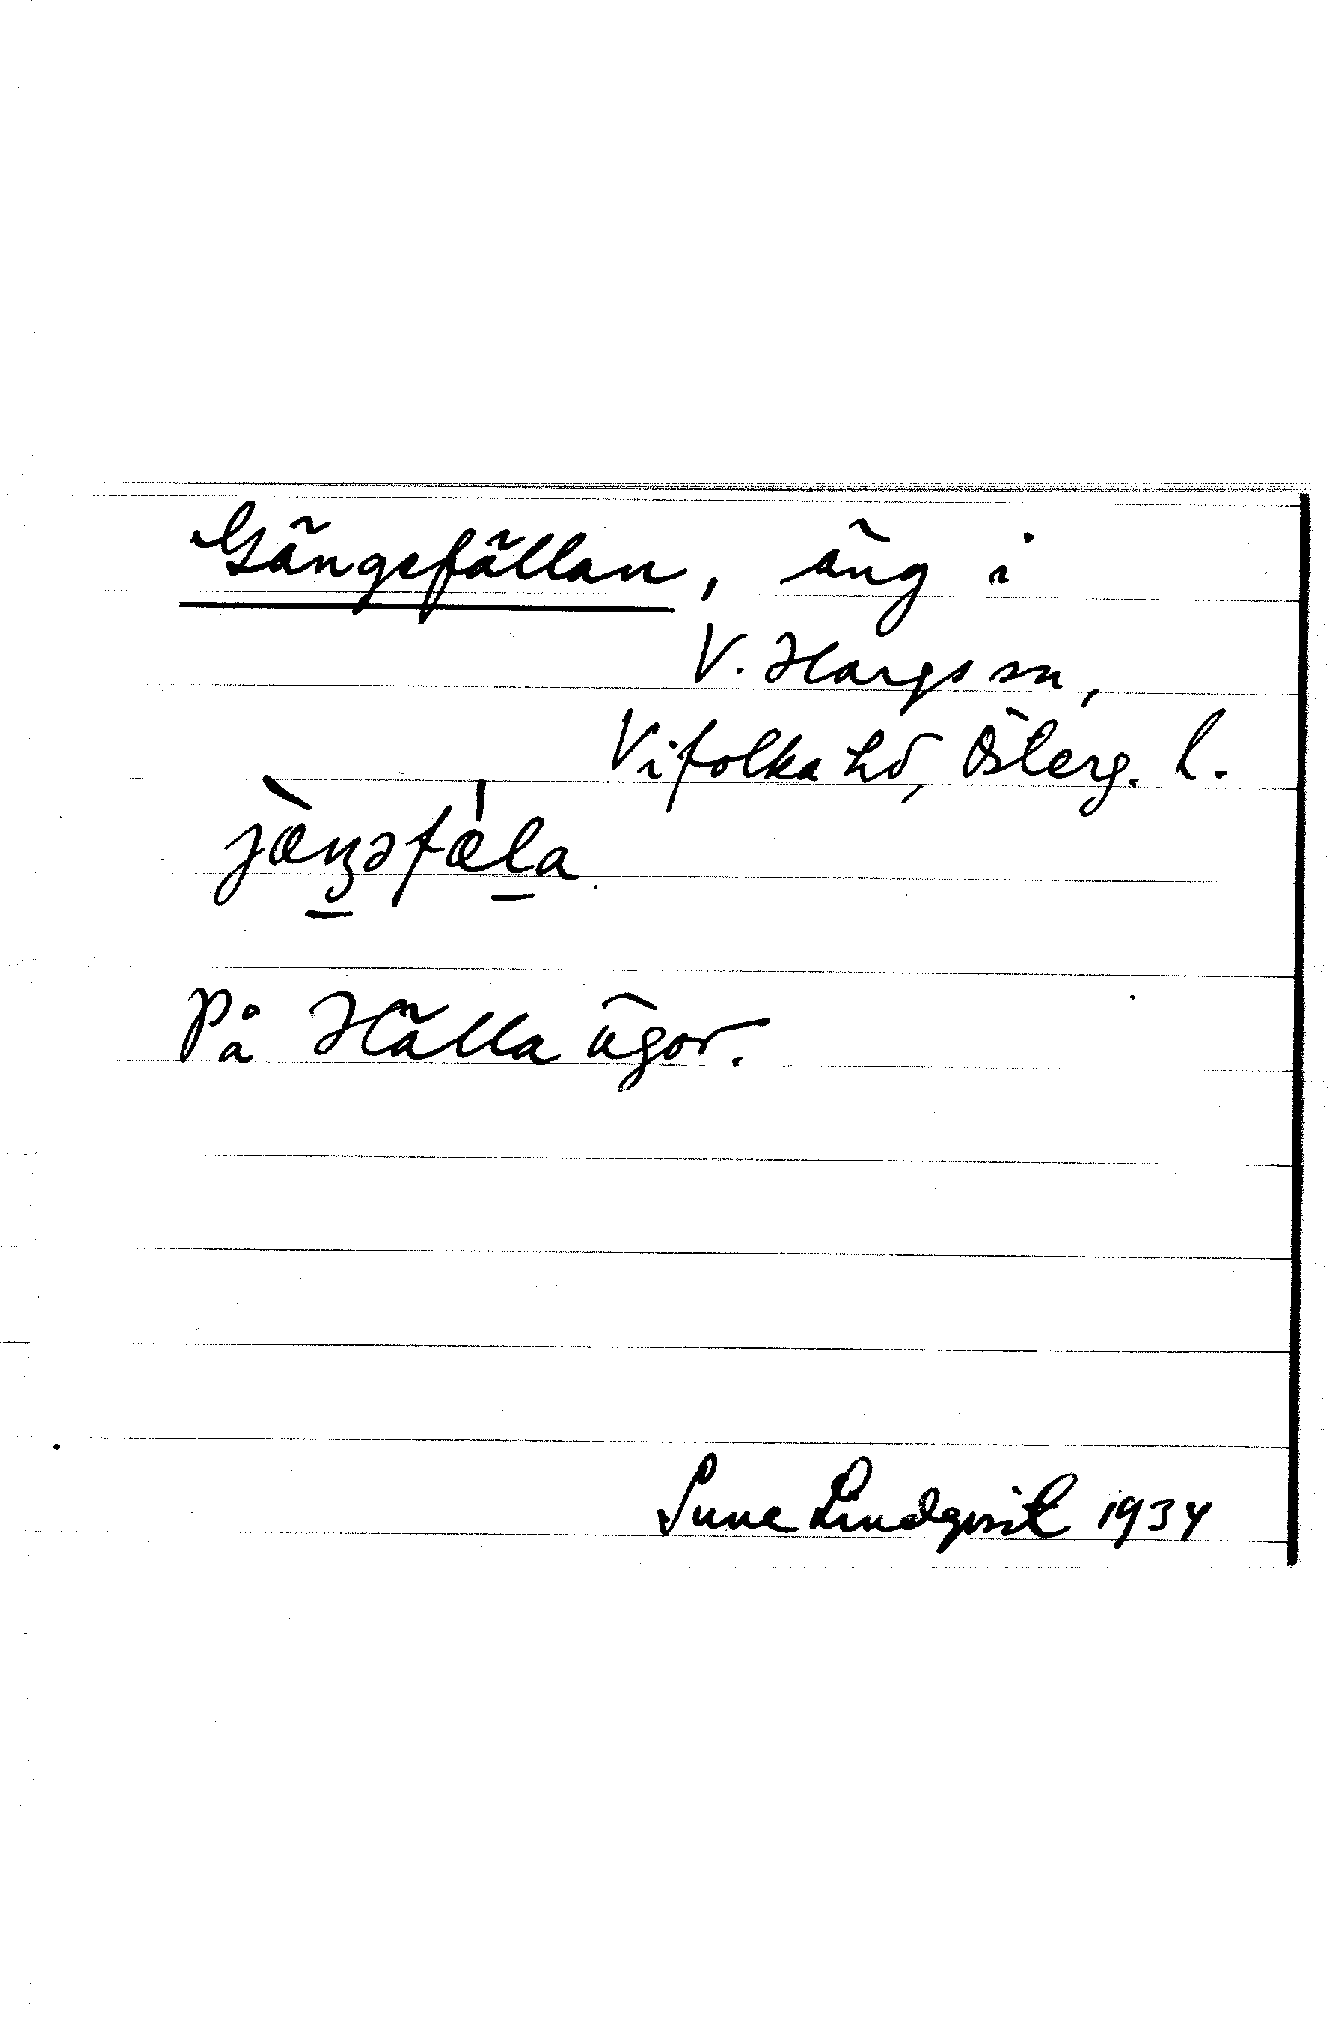 Gängefällan, äng i
V. Hargs sn,
Vifolka hd, Österg. l.
jæ̀ŋəfæ̍la
På Hälla ägor.
Sune Lindqvist 1934